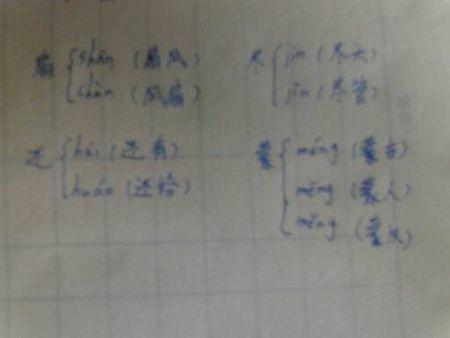 扇 shān (扇风) 尽 jìn (尽头)
shàn (风扇) jǐn (尽管)
还 hái (还有) 蒙 měng (蒙古)
huán (还给) mēng (蒙人)
méng (蒙